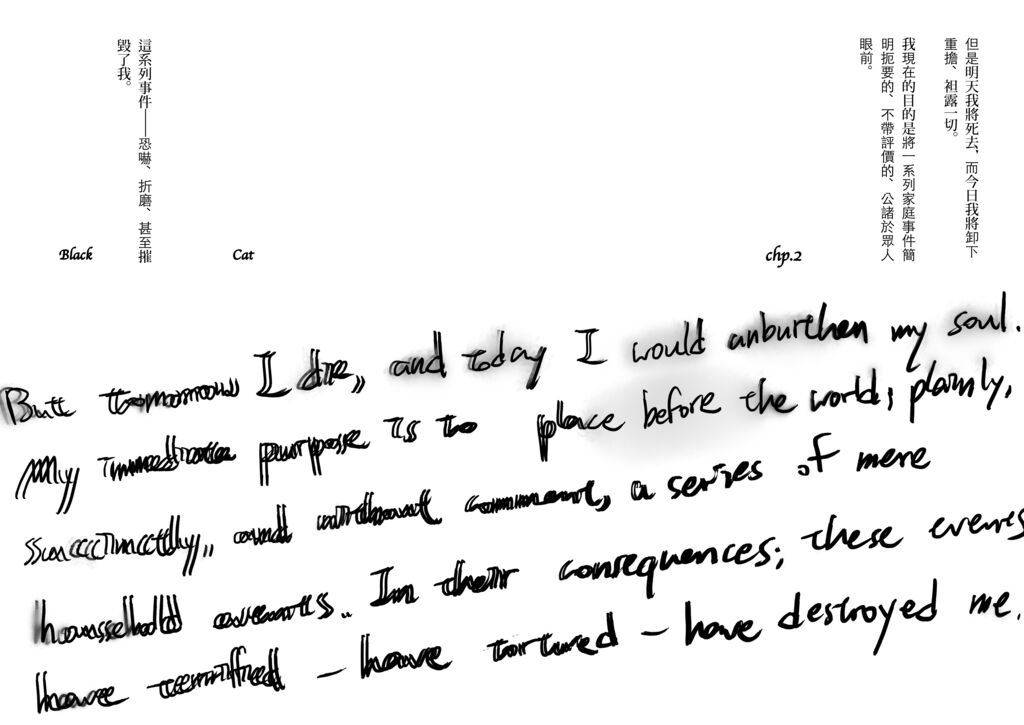 但是明天我將死去，而今日我將卸下
重擔、袒露一切。
我現在的目的是將一系列家庭事件簡
明扼要的、不帶評價的、公諸於眾人
眼前。
這系列事件——恐嚇、折磨、甚至摧
毀了我。
Black Cat chp.2
But tomorrow I die, and today I would unburthen my soul.
My immediate purpose is to place before the world, plainly,
succinctly, and without comment, a series of mere
household events. In their consequences; these events
have terrified – have tortured – have destroyed me.